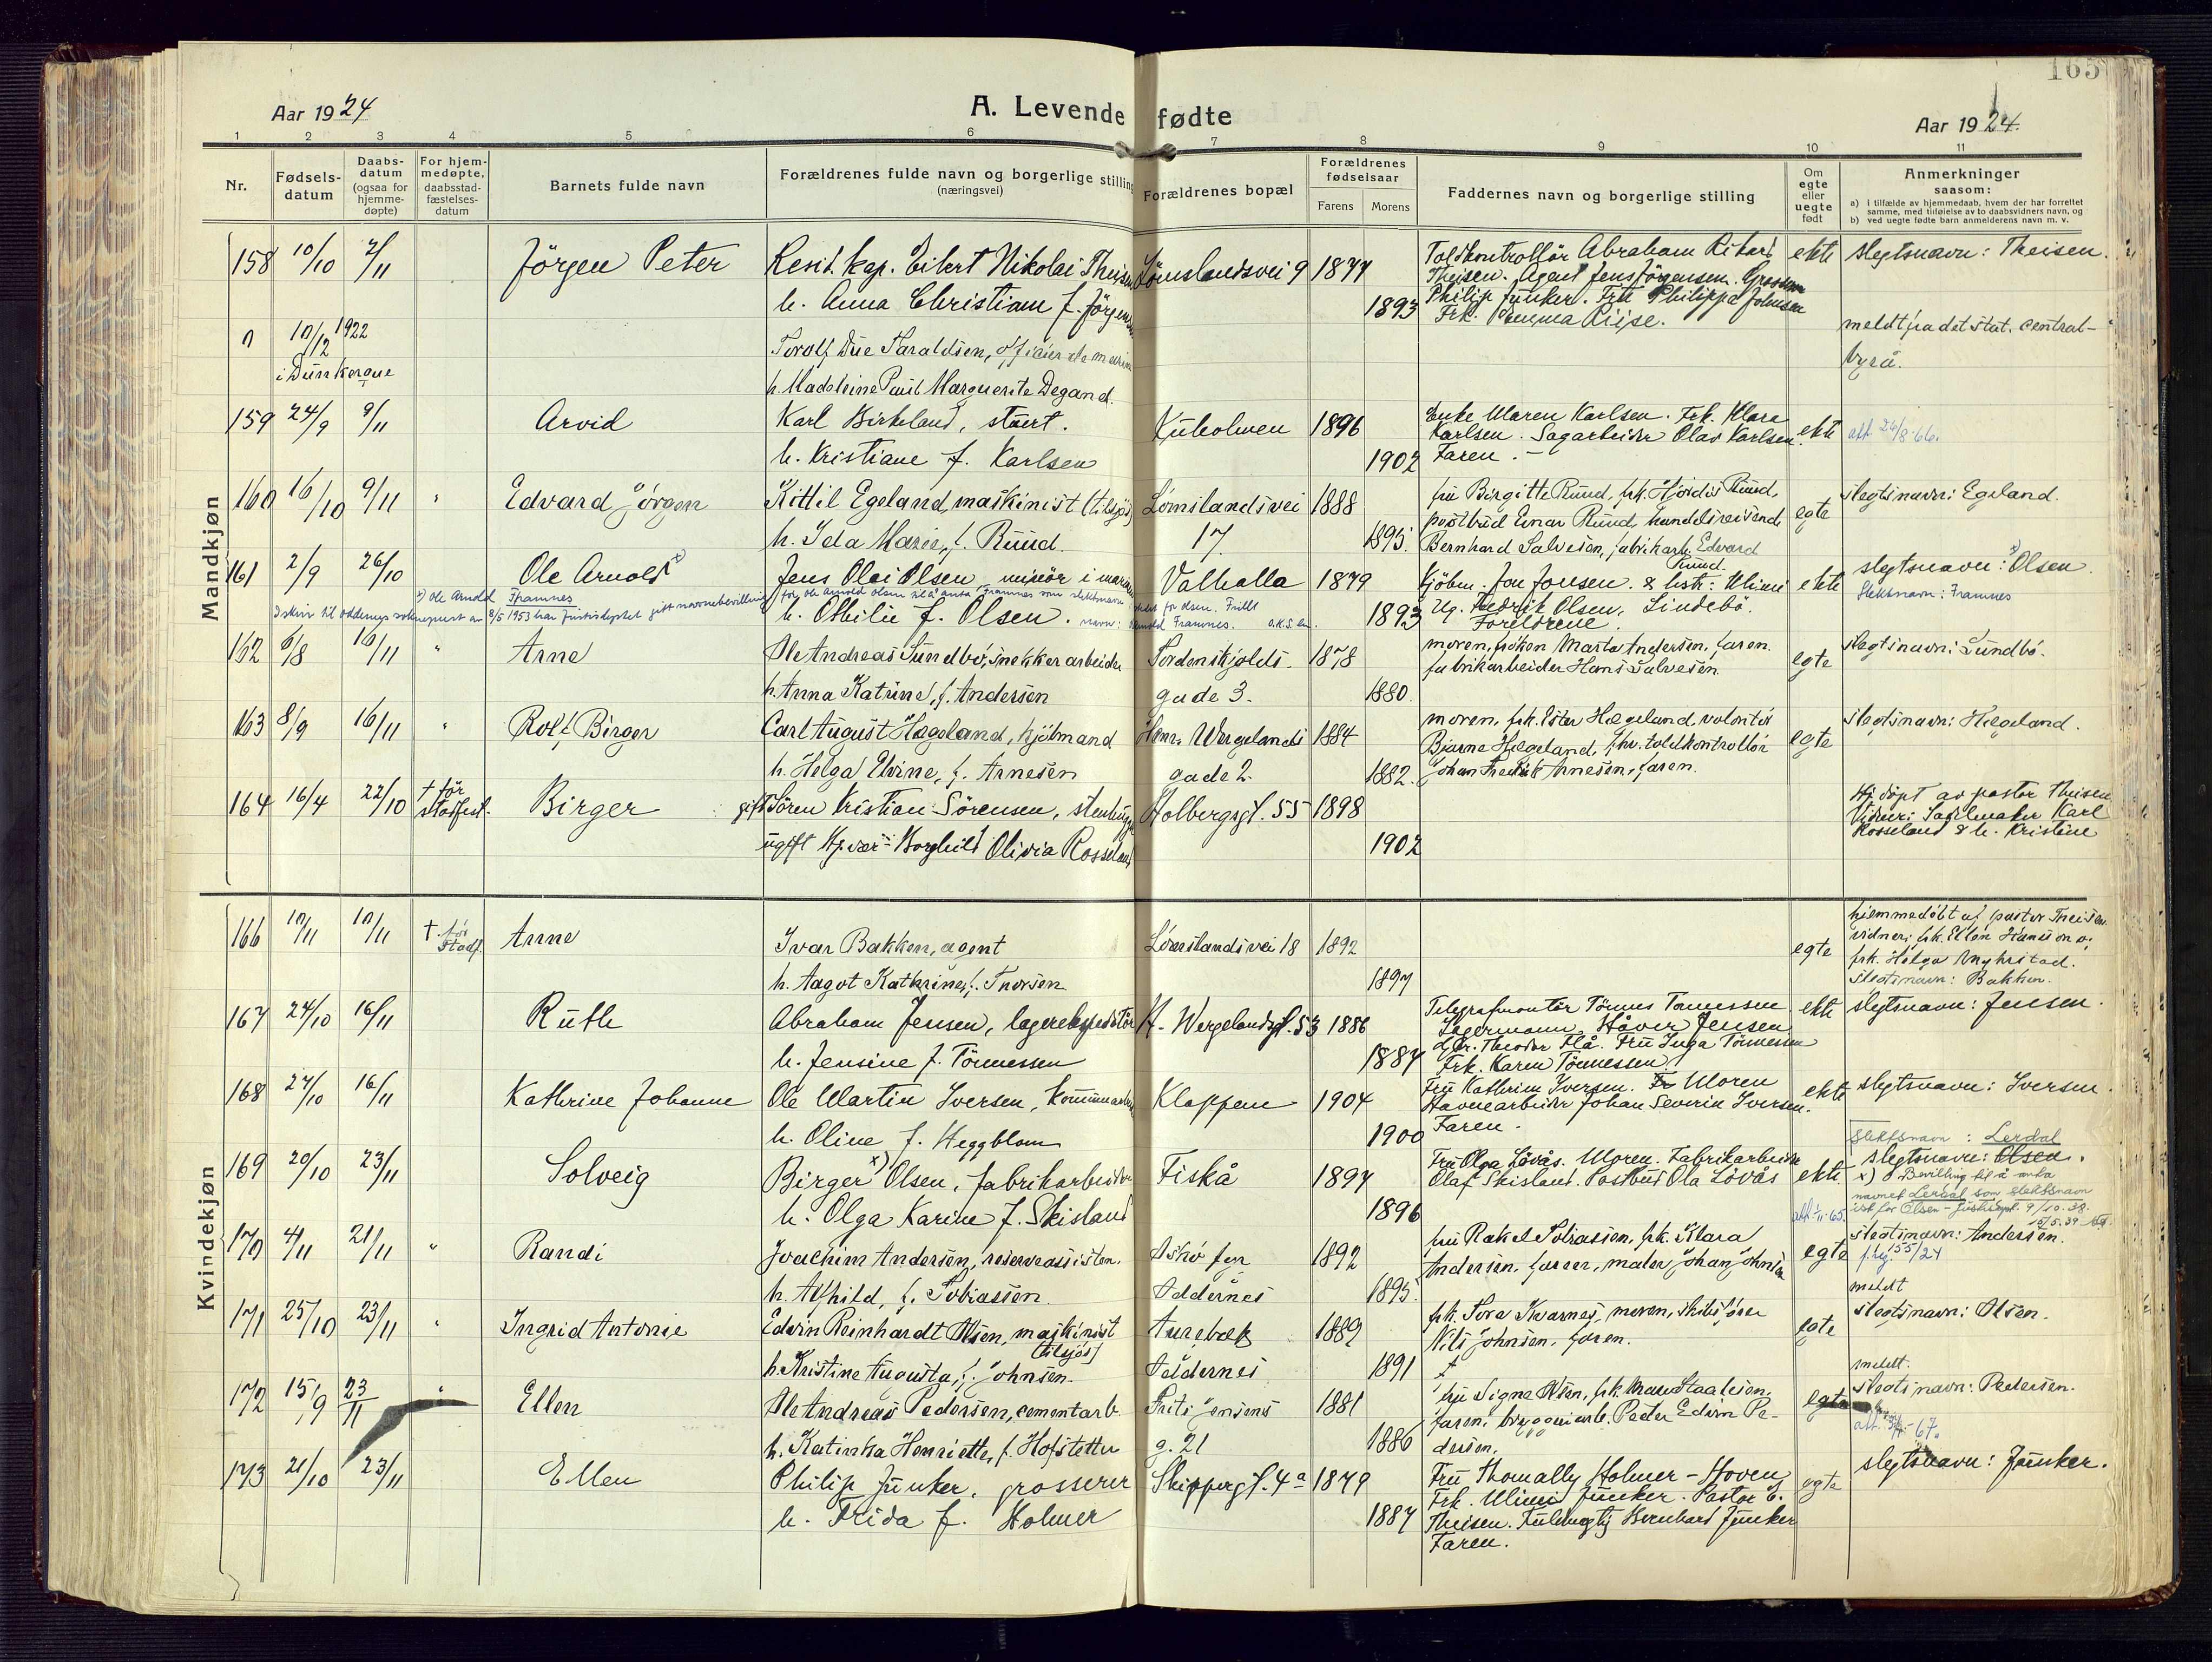 165
Aar 1924
A. Levende fødte
Aar 1924.
1 2 3 4 5 6 7 8 9 10 11
Nr.
Fødsels-
datum
Daabs-
datum
(ogsaa for
hjemme-
døpte)
For hjem-
medøpte,
daabsstad-
fæstelses-
datum
Barnets fulde navn
Forældrenes fulde navn og borgerlige stilling
(næringsvei)
Forældrenes bopæl
Forældrenes
fødselsaar
Farens
Morens
Faddernes navn og borgerlige stilling
Om
egte
eller
uegte
født
Anmerkninger
saasom:
a) i tilfælde av hjemmedaab, hvem der har forrettet
samme, med tilføielse av to daabsvidners navn, og
b) ved uegte fødte barn anmelderens navn m. v.
Mandkjøn
158 10/10 2/11 Jörgen Peter
Resid. kap. Eilert Nikolai Theisen
h. Anna Christiane f. Jörgensen
Lömslandsvei 9 1877
1893
Toldkontrollör Abraham Rikard
Theisen. Agent Jens Jörgensen. Grosserer
Philip Junker. Fru Philippa Johnsen
Frk. Emma Riise.
ekte
slegtsnavn: Theisen.
n 10/12 1922
i Dunkerque
Torolf Due Haraldsen, officier de marine
h. Madeleine Paul Marguerite Degand.
meldt fra det stat. central-
byrå.
159 24/9 9/11 Arvid
Karl Birkeland, stuert.
h. Kristiane f. Karlsen
Kuholmen 1896
1902
Enke Maren Karlsen. Frk. Klara
Karlsen. Sagarbeider Olav Karlsen.
Faren.
ekte
att 26/8-66.
160 16/10 9/11 " Edvard Jörgen
Kittil Egeland, maskinist (tilsjös)
h. Ida Marie, f. Ruud.
Lömslandsvei
17
1888
1895.
fru Birgitte Ruud, frk. Hjördis Ruud,
postbud Einar Ruud, handelsreisende
Bernhard Salvesen, fabrikarb. Edvard
Ruud.
egte
slegtsnavn: Egeland.
161 2/9 26/10 Ole Arnold x)
Jens Olai Olsen, minör i marinen
h. Othilie f. Olsen.
Valhalla 1879
1893
Kjöbm. Jon Jonsen. & hstr: Mimi
Ug. Fredrik Olsen, Lindebö.
Foreldrene.
ekte
slegtsnavn: x) Olsen.
Slektsnavn: Framnes
x) Ole Arnold Framnes
I skriv til Oddernes sokneprest av 8/5 1953 har Justisdeptet gitt navnebevilling for Ole Arnold Olsen til å anta Framnes som slektsnavn istedet for Olsen. Fullt
navn: Arnold Framnes.
162 6/8 16/11 " Arne
Ole Andreas Sundbö, snekkerarbeider
h. Anna Katrine, f. Andersen
Tordenskjolds-
gade 3.
1878
1880.
moren, fröken Marta Andersen, faren.
fabrikarbeider Hans Salvesen.
egte
slegtsnavn: Sundbö.
163 8/9 16/11 " Rolf Birger
Carl August Hægeland, kjöbmand
h. Helga Elvine, f. Arnesen
Henr. Wergelands
gade 2.
1884
1882.
moren, frk. Ester Hægeland, volontör
Bjarne Hægeland, fhv. toldkontrollör
Johan Fredrik Arnesen, faren.
egte
slegtsnavn: Hægeland.
164 16/4 22/10 † för
stadfest. Birger
gift Sören Kristian Sörensen, stenhugger
ugift Hj.vær. Borghild Olivia Rosseland
Holbergsgt. 55 1898
1902
Hj.döpt av pastor Theisen
Vidner: Sadelmaker Karl
Rosseland & h. Kristine
Kvindekjøn
166 10/11 10/11 † för
Stadf. Anne
Ivar Bakken, agent
h. Aagot Kathrine, f. Thorsen
Lömslandsvei 18 1892
1897
egte
hjemmedöbt af pastor Theisen.
vidner: frk. Ellen Hansson o.
frk. Helga Myhrstad.
Slegtsnavn: Bakken.
167 24/10 16/11 Ruth
Abraham Jensen, lagerekspeditör
h. Jensine f. Tönnessen
H. Wergelandsgt. 53 1886
1887
Telegrafmontör Tönnes Tönnessen
Lagermann Håver Jensen
Theodor Flå. Fru Inga Tönnessen
Frk. Karen Tönnessen
ekte
slegtsnavn: Jensen.
168 27/10 16/11 Kathrine Johanne
Ole Martin Iversen, kommunearb.
h. Oline f. Heggblom
Kloppen 1904
1900
Fru Kathrine Iversen. Moren
Havnearbeider Johan Severin Iversen.
Faren.
ekte
slegtsnavn: Iversen.
169 20/10 23/11 Solveig
Birger x) Olsen, fabrikarbeider
h. Olga Karine f. Skisland
Fiskå 1897
1896
Fru Olga Lövås. Moren. Fabrikarbeider
Olaf Skisland. Postbud Ola Lövås
ekte
Slektsnavn: Lerdal
slegtsnavn: Olsen.
x) Bevilling til å anta
navnet Lerdal som slektsnavn
istf. for Olsen - Justisdept. 9/10.38.
15/5.39
170 4/11 21/11 " Randi
Joachim Andersen, reserveassistent.
h. Alfhild, f. Tobiassen.
Oksö fyr
Oddernes
1892
1895.
fru Rakel Tobiassen, frk. Klara
Andersen, faren, maler Johan Johnsen
egte
slegtsnavn: Andersen.
155/24
171 25/10 23/11 " Ingrid Antonie
Edvin Reinhardt Olsen, maskinist
(tilsjös)
h. Kristine Augusta, f. Johnsen.
Aurebæk
Oddernes
1889
1891
frk. Tora Kvarnes, moren, skibsförer
Nils Johnsen, faren.
egte
meldt
slegtsnavn: Olsen.
172 15/9 23/11 " Ellen
Ole Andreas Pedersen, cementarb.
h. Katinka Henriette, f. Hofstetter
Frits Jensens
g. 21
1881
1886
fru Signe Olsen, frk. Staalesen.
faren, bryggeriarb. Peder Edvin Pe-
dersen.
egte
meldt.
slegtsnavn: Pedersen.
173 21/10 23/11 Ellen
Philip Junker, grosserer
h. Frida f. Holmer
Skippergt. 4a 1879
1887
Fru Thomally Holmer-Hoven
Frk. Mimi Junker. Pastor E.
Theisen. Fuldmegtig Bernhard Junker
Faren.
egte
slegtsnavn: Junker.